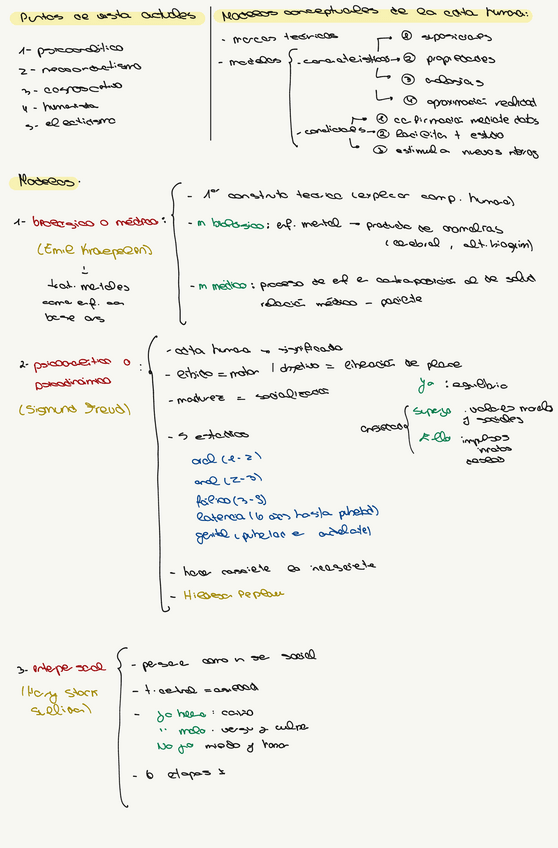 Puntos de vista actuales
1- psicoanalítico
2- neoconductismo
3- cognoscitivo
4- humanista
5- eclecticismo
Modelos conceptuales de la cdta humana:
- marcos teóricos
- modelos
- características
① suposiciones
② propiedades
③ analogías
④ aproximación realidad
- condiciones
① confirmación mediante datos
② facilitan + estudio
③ estimula nuevos
Modelos.
1- biológico o médico:
(Emil Kraepelin)
trat. mentales
como enf. con
base org
- 1er constructo teórico (explicar comp. humano)
- m biológico: enf. mental → producto de anomalías
(cerebral, alt. bioquím)
- m médico: proceso de enf en contraposición al de salud
relación médico - paciente
2- psicoanalítico o
psicodinámico
(Sigmund Freud)
- cdta humana → significado
- libido = motor / objetivo = liberación de placer
- madurez = socialización
yo: equilibrio
superyo: valores morales
y sociales
Ello impulsos
innatos
deseos
- 5 estadios
oral (1-2)
anal (2-3)
fálico (3-5)
latencia (6 años hasta pubertad)
genital (pubertad e adulta)
- hacer consciente lo inconsciente
- Hildegard Peplau
3- interpersonal
(Harry Stack
Sullivan)
- persona como un ser social
- t. central = ansiedad
- yo bueno: cariño
" malo: y culpa
No yo miedo y horror
- 6 etapas: